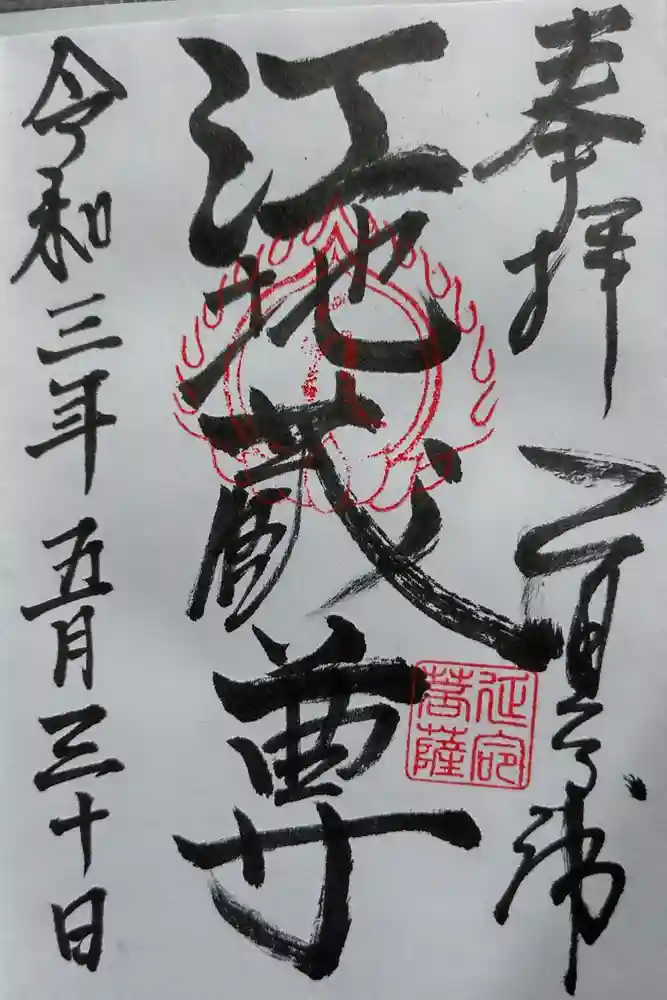 奉拝
江地蔵尊
延命
菩薩
令和三年五月三十日